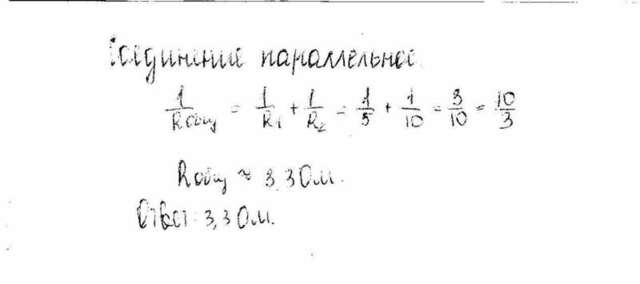 Соединение параллельное
1/Rобщ = 1/R1 + 1/R2 = 1/5 + 1/10 = 3/10 = 10/3
Rобщ ≈ 3,3 Ом.
Ответ: 3,3 Ом.